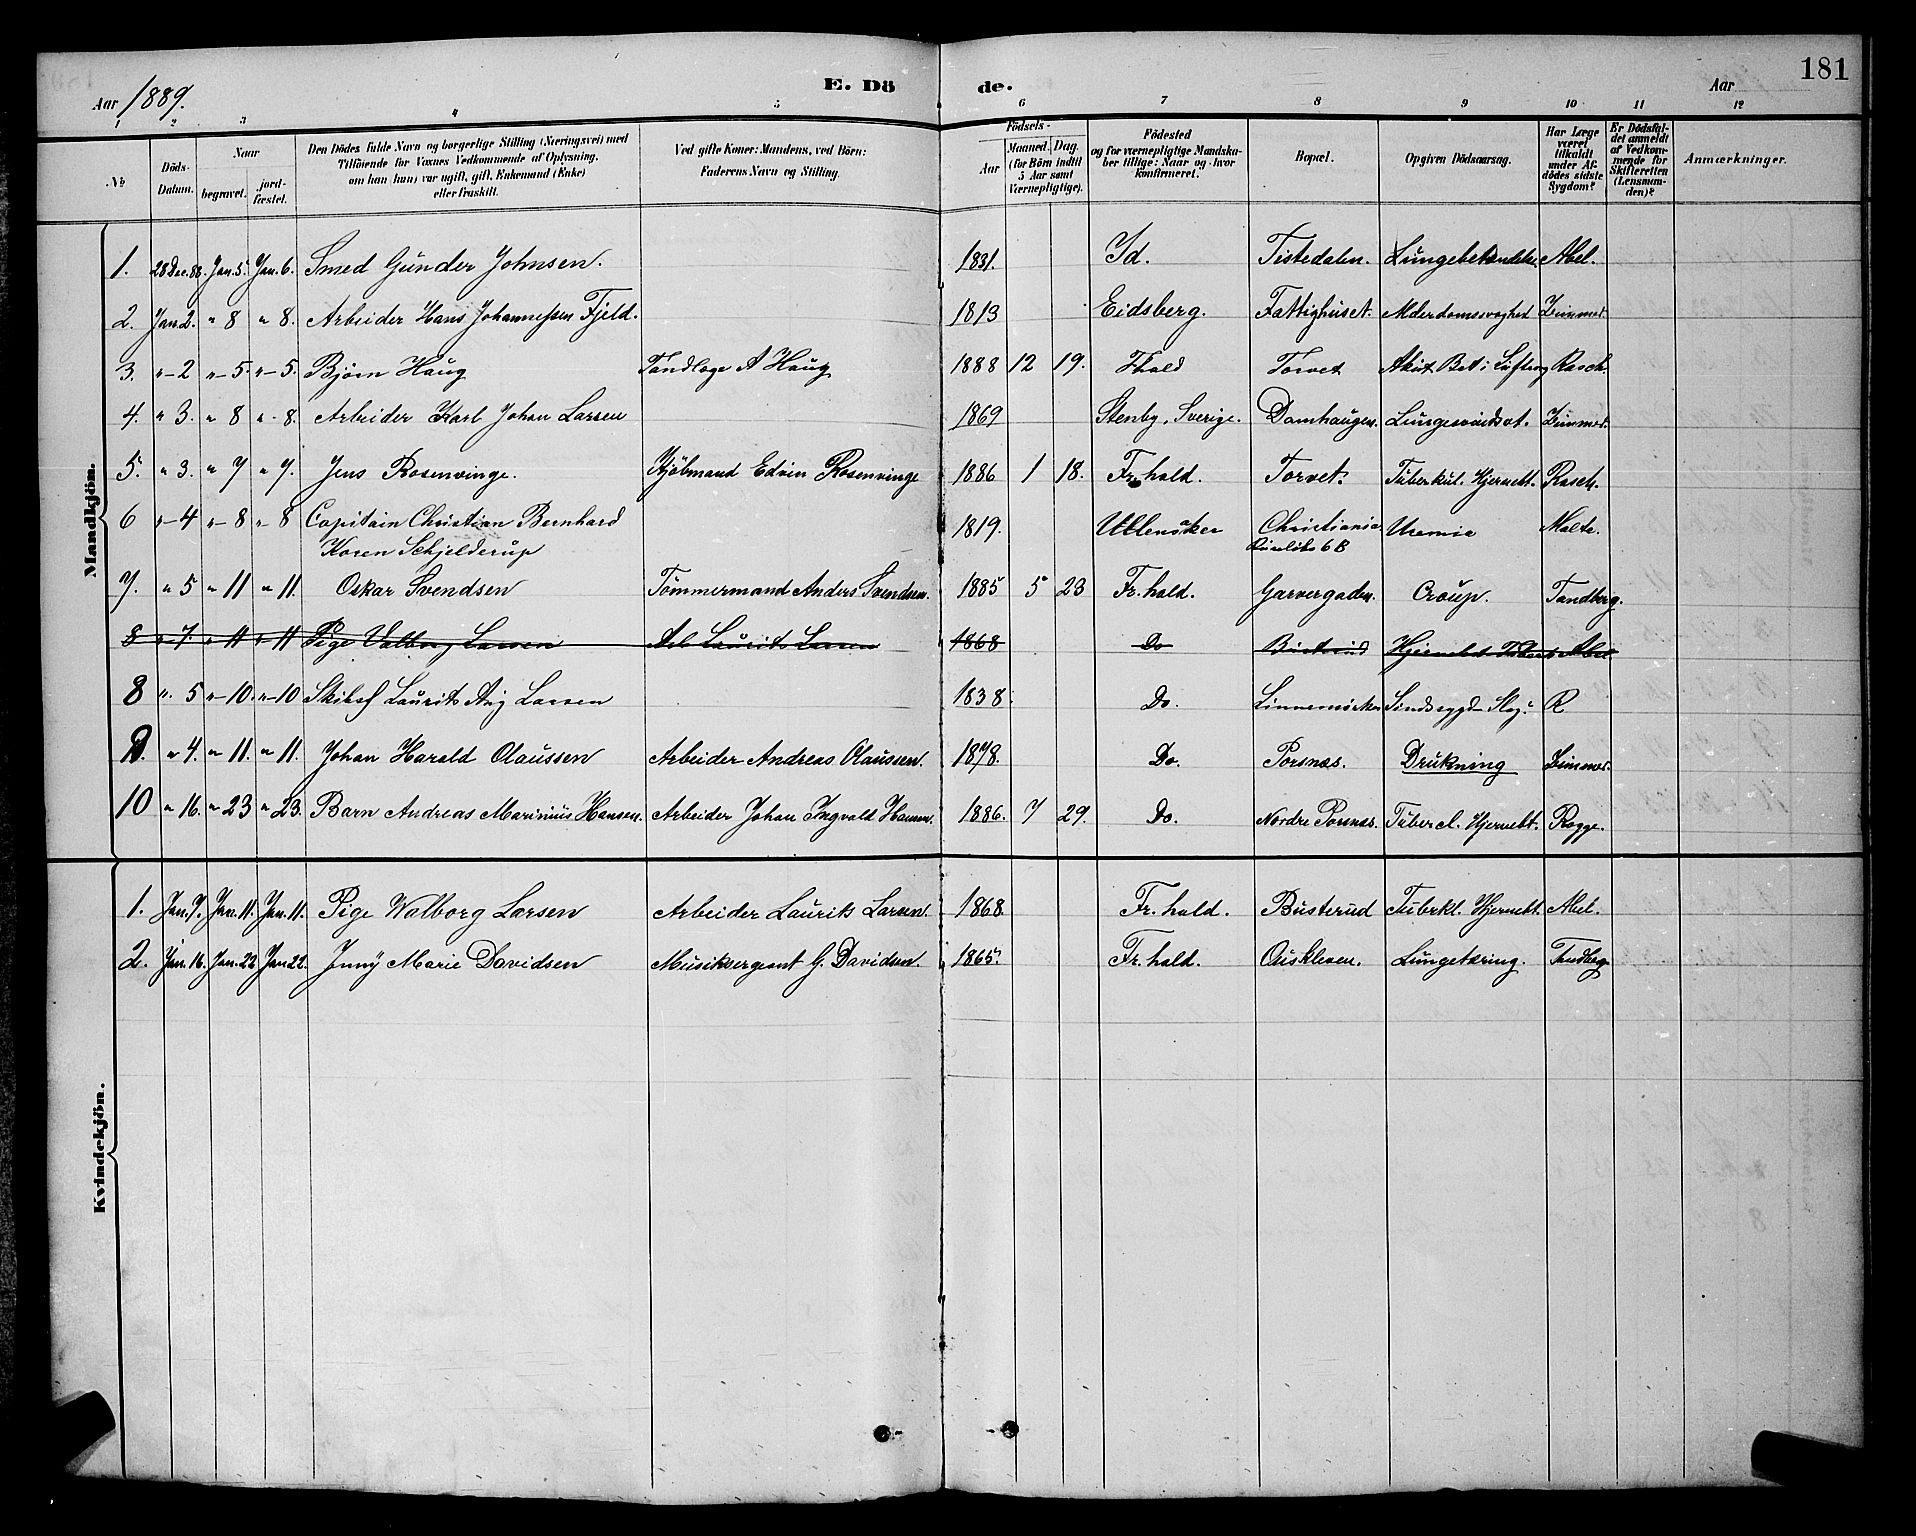 181
Aar 1889. E. Dö de. Aar
1 2 3 4 5 6 7 8 9 10 11 12
№ Döds-Datum. Naar begravet. jord-fæstet. Den Dödes fulde Navn og borgerlige Stilling (Næringsvei) med Tilföiende for Voxnes Vedkommende af Oplysning, om han (hun) var ugift, gift, Enkemand (Enke) eller fraskilt. Ved gifte Koner: Mandens, ved Börn: Faderens Navn og Stilling. Födsels- Aar Maaned. Dag. (for Börn indtil 5 Aar samt Værnepligtige). Födested og for værnepligtige Mandskaber tillige: Naar og hvor konfirmeret. Bopæl. Opgiven Dödsaarsag. Har Læge været tilkaldt under Afdödes sidste Sygdom? Er Dödsfaldet anmeldt af Vedkommende for Skifteretten (Lensmanden)? Anmærkninger.
Mandkjön.
1. 28 Dec. 88. Jan. 5. Jan. 6. Smed Gunder Johnsen. 1831. Id. Tistedalen. Lungebetændelse. Abel.
2. Jan. 2. " 8 " 8. Arbeider Hans Johannessen Fjeld. 1813 Eidsberg. Fattighuset. Alderdomssvaghed Zimmer.
3. " - 2 " - 5. " - 5. Bjørn Haug Tandlæge A Haug 1888 12 19. Fhald Torvet Akut Bet. i Luftveg Rasch.
4. " 3. " 8 " - 8. Arbeider Karl Johan Larsen 1869 Stenby, Sverige. Damhaugen. Lungesvindsot. Zimmer.
5. " 3. " 7 " 7. Jens Rosenvinge. Kjøbmand Edvin Rosenvinge 1886 1 18. Fr.hald. Torvet. Tuberkul. Hjernebt. Rasch.
6 " - 4 " - 8 " - 8 Capitain Christian Bernhard 1819. Ullensaker Christiania Uremia Malte.
Koren Schjelderup 6 B
7. " 5 " 11 " 11. Oskar Svendsen Tømmermand Anders Svendsen. 1885 5 23 Fr.hald. Garvergaden. Croup. Tandberg.
8 " 7. " 11 " 11 Pige Valborg Larsen Arb Laurits Larsen 1868 Do Busterud Hjernebet Tuberk Abel
8 " 5 " - 10. " - 10 Skibsf Laurits Aug Larsen 1838. Do. Linnemørken Sindssygd - Slag R
9. " 4. " 11. " 11. Johan Harald Olaussen Arbeider Andreas Olaussen. 1878. Do. Porsnæs. Drukning Zimmer.
10 " 16. " 23 " 23. Barn Andreas Marinius Hansen. Arbeider Johan Ingvald Hansen. 1886. 7 29. Do. Nordre Porsnæs. Tubercl. Hjernebt. Rogge.
Kvindekjön.
1. Jan. 7. Jan. 11. Jan. 11. Pige Walborg Larsen Arbeider Laurits Larsen. 1868. Fr.hald. Busterud Tuberkl. Hjernebt. Abel.
2. Jan. 16. Jan. 22 Jan. 22. Jenny Marie Davidsen Musiksergeant G. Davidsen. 1865. Fr.hald. Ouskleven. Lungetæring. Tandberg